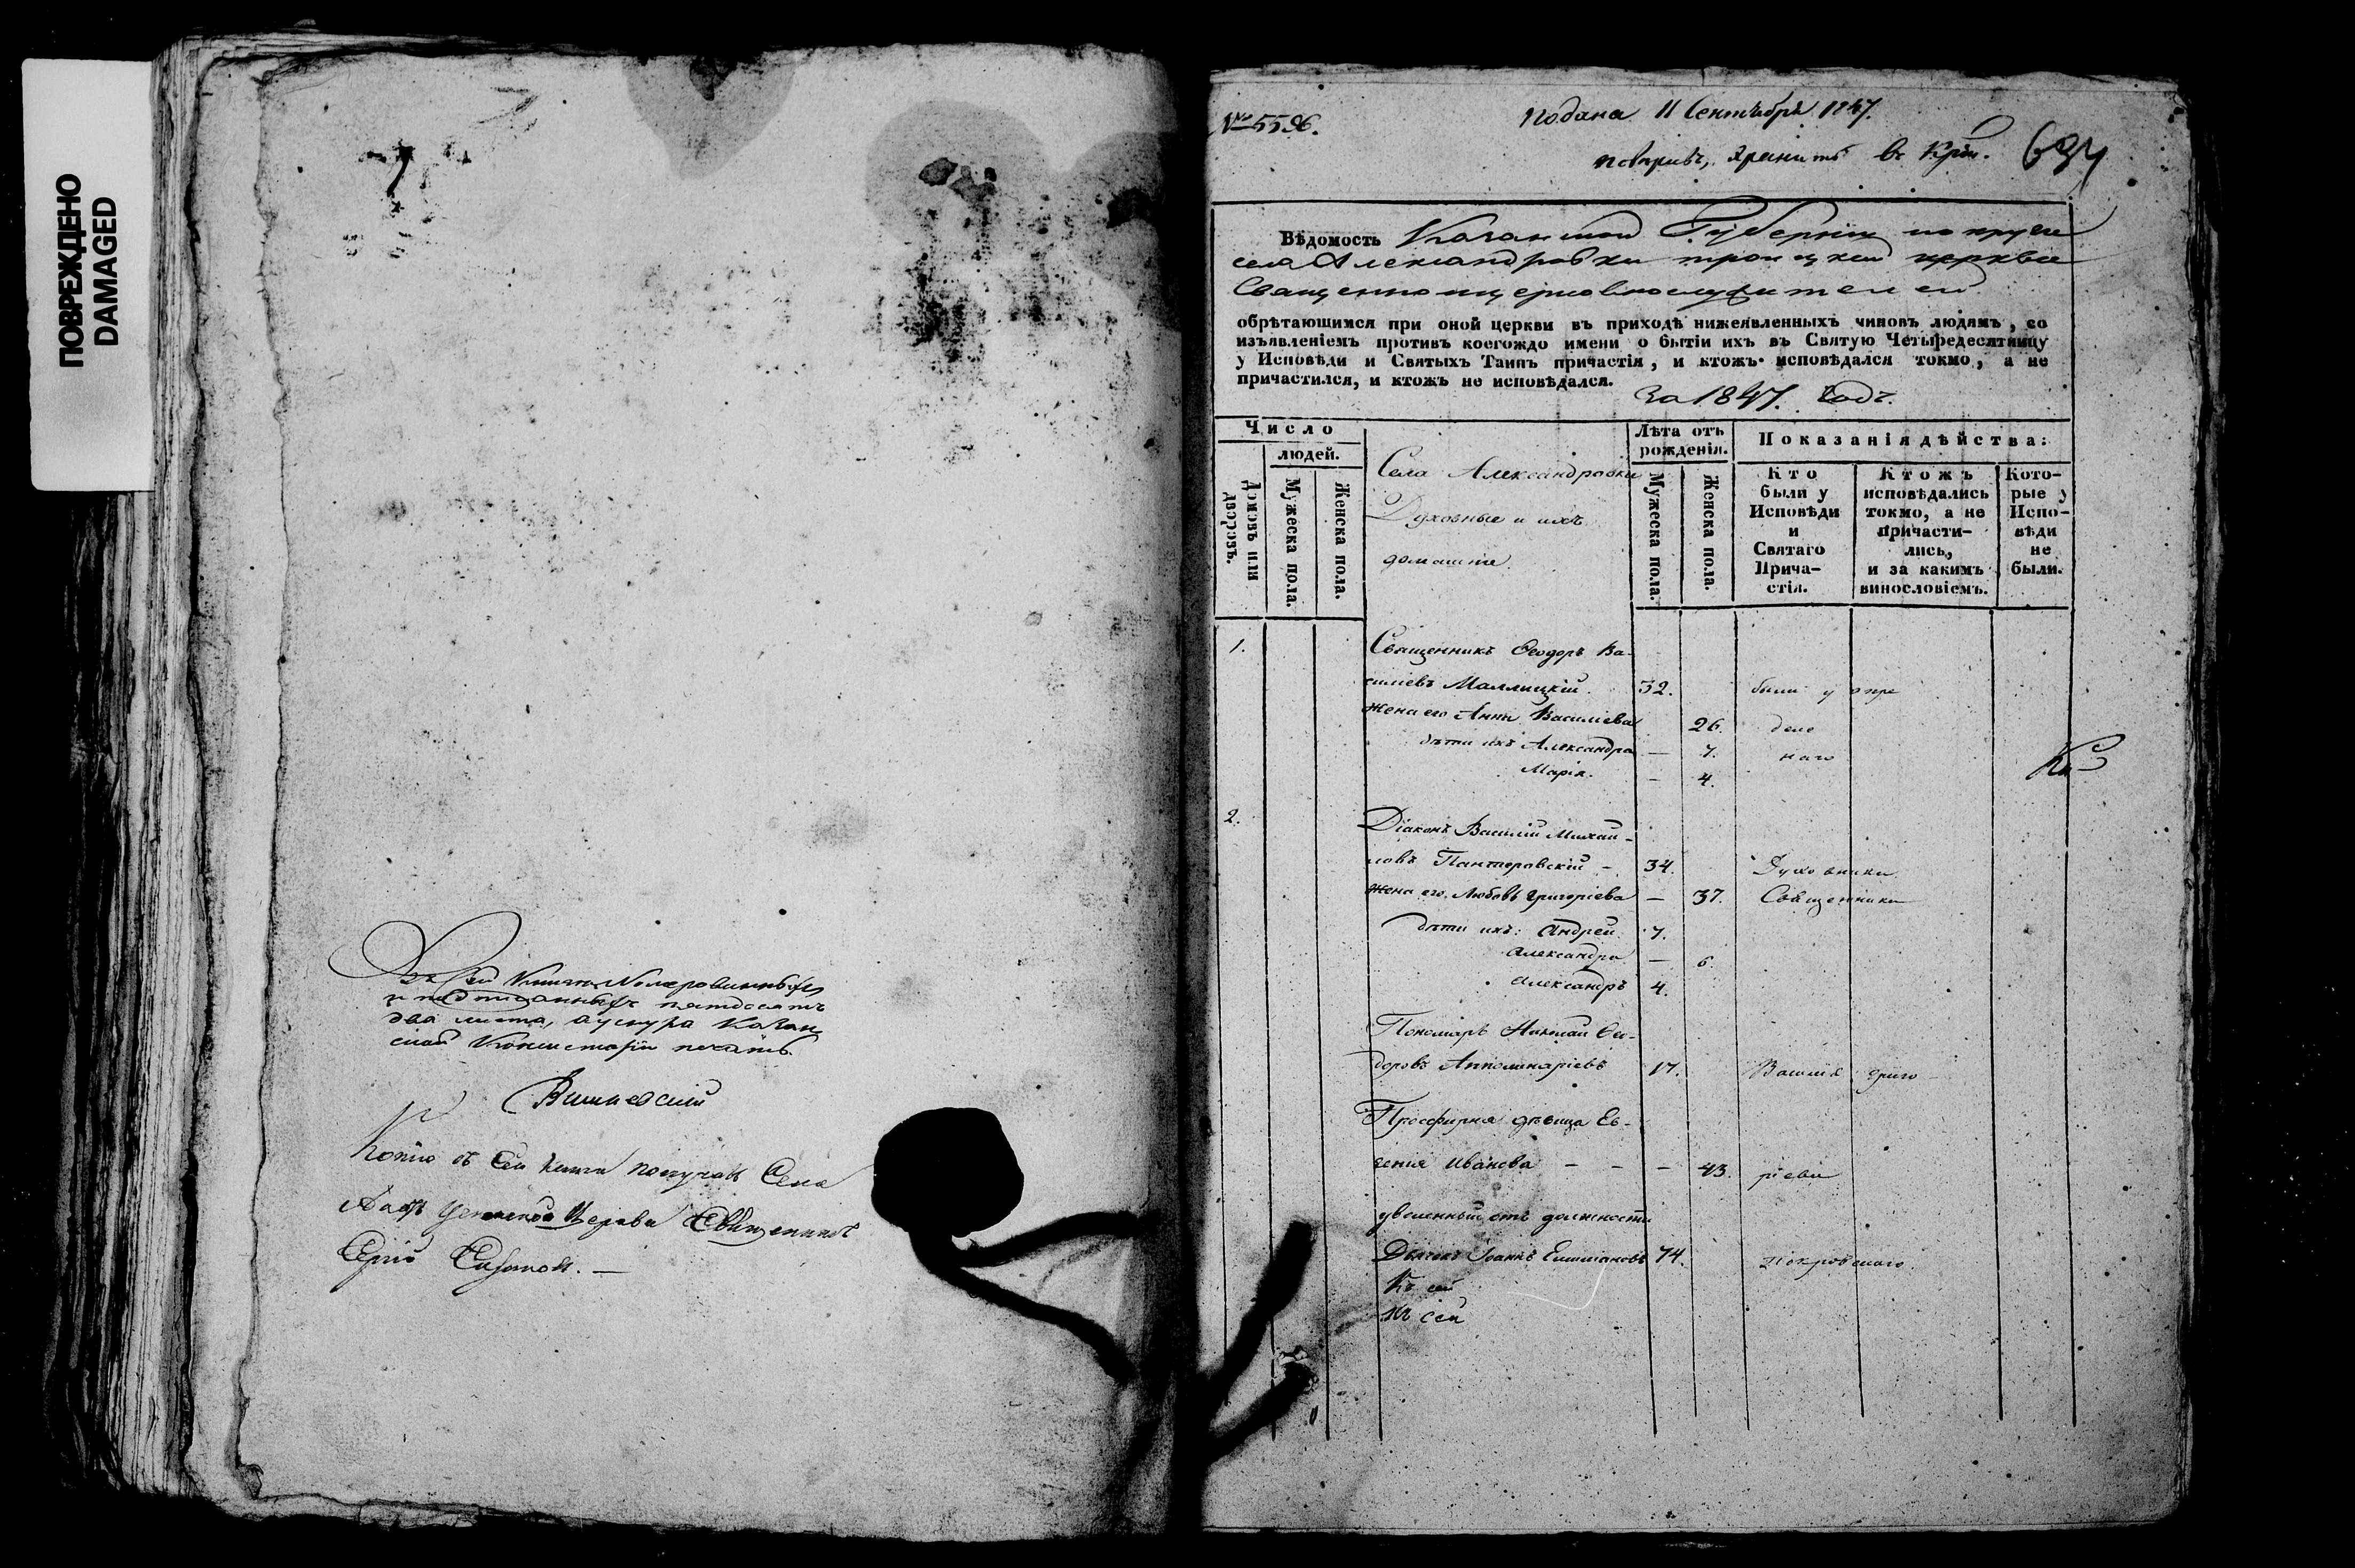 ПОВРЕЖДЕНО
DAMAGED
въ сей Книге Номерованныхъ
и подписанныхъ пятдесятъ
два листа, а у снура Казан
ской Консисторіи печать.
Вишневскій
Копію съ сей книги получилъ Села
Церкви Священникъ
Сергій
№ 5596.
Подана 11 Сентября 1847.
хранить въ 634
Вѣдомость Казанской Губерніи
села Александровки троицкой церкви
Священноицерковнослужителей
обрѣтающимся при оной церкви въ приходѣ нижеявленныхъ чиновъ людямъ, со
изъявленіемъ противъ коегождо имени о бытіи ихъ въ Святую Четыредесятницу
у Исповѣди и Святыхъ Таинъ причастія, и ктожъ исповѣдался токмо, а не
причастился, и ктожъ не исповѣдался.
За 1847. Годъ.
Число
людей.
Домовъ или дворовъ.
Мужеска пола.
Женска пола.
Села Александровки
Духовные и ихъ
домашніе.
Лѣта отъ
рожденія.
Мужеска пола.
Женска пола.
Показанія дѣйства:
Кто
были у
Исповѣди
и
Святаго
Прича-
стія.
Ктожъ
исповѣдались
токмо, а не
причасти-
лись,
и за какимъ
винословіемъ.
Кото-
рые у
Испо-
вѣди
не
были.
1. Священникъ Ѳеодоръ Ва-
силіевъ Маллицкій. 32. были у опре
Жена его Анна Василіева 26. деле
дѣти ихъ Александра — 7. наго
Марія. — 4.
2. Діаконъ Василій Михаи-
ловъ Пантеровскій - 34. Духовника
Жена его Любовь Григоріева — 37. Священника
дѣти ихъ: Андрей 7.
Александра — 6.
Александръ 4.
Пономарь Николай Ѳео-
доровъ Апполинаріевъ 17. Василія Григо
Просфирня дѣвица Ев-
генія Иванова - - - 43. ріева
уволенный отъ должности
Дьячекъ Іоаннъ 74. Покровскаго.
Къ сей
Къ сей